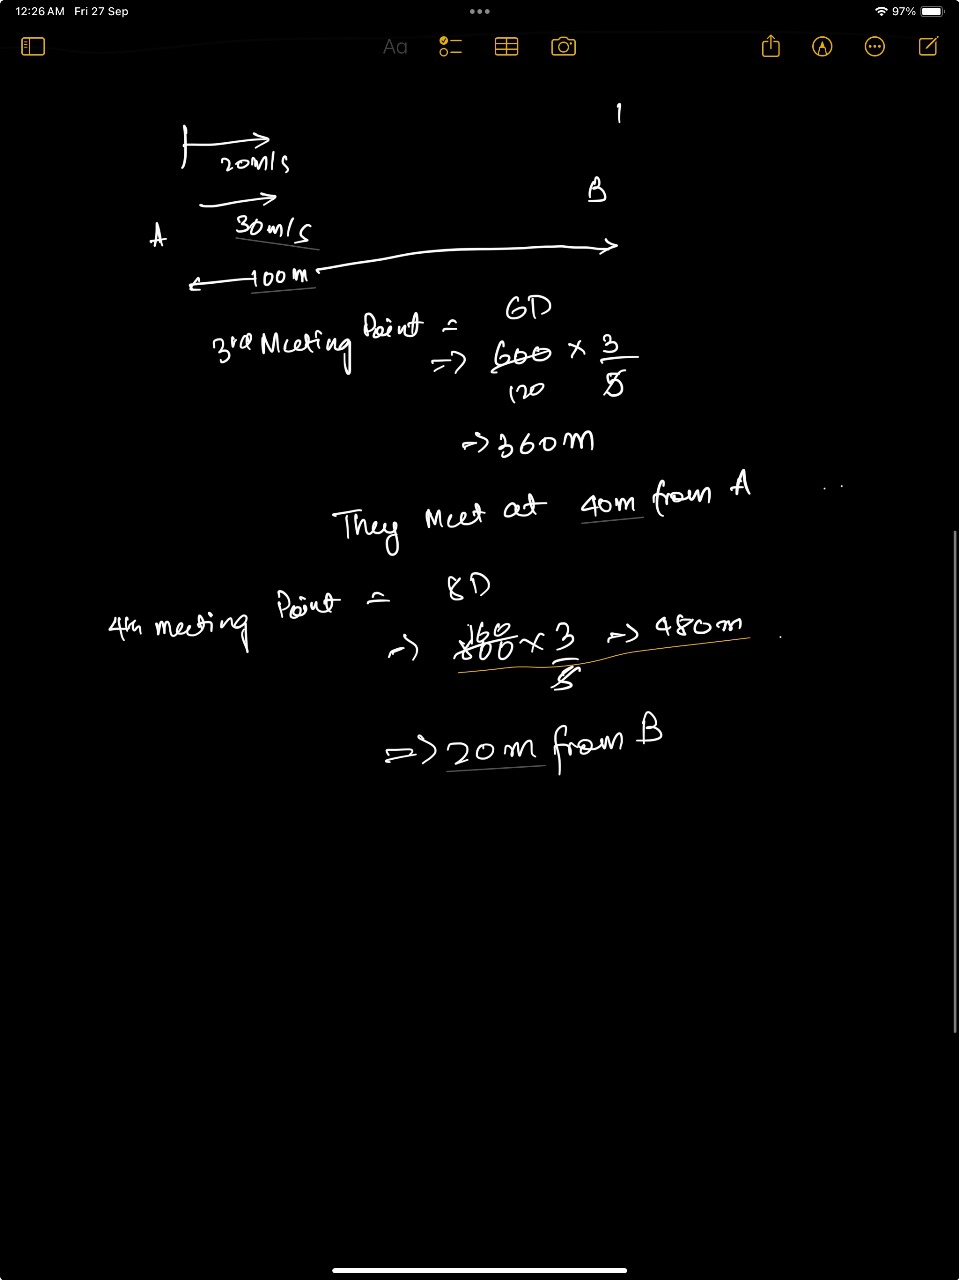 12:26 AM Fri 27 Sep
97%
Aa
20m/s
B
30m/s
A
100m
3rd Meeting Point = 6D
=> 600 × 3/5
120
=> 360m
They Meet at 40m from A
4th meeting Point = 8D
=> 160
800 × 3/5 => 480m
=> 20m from B